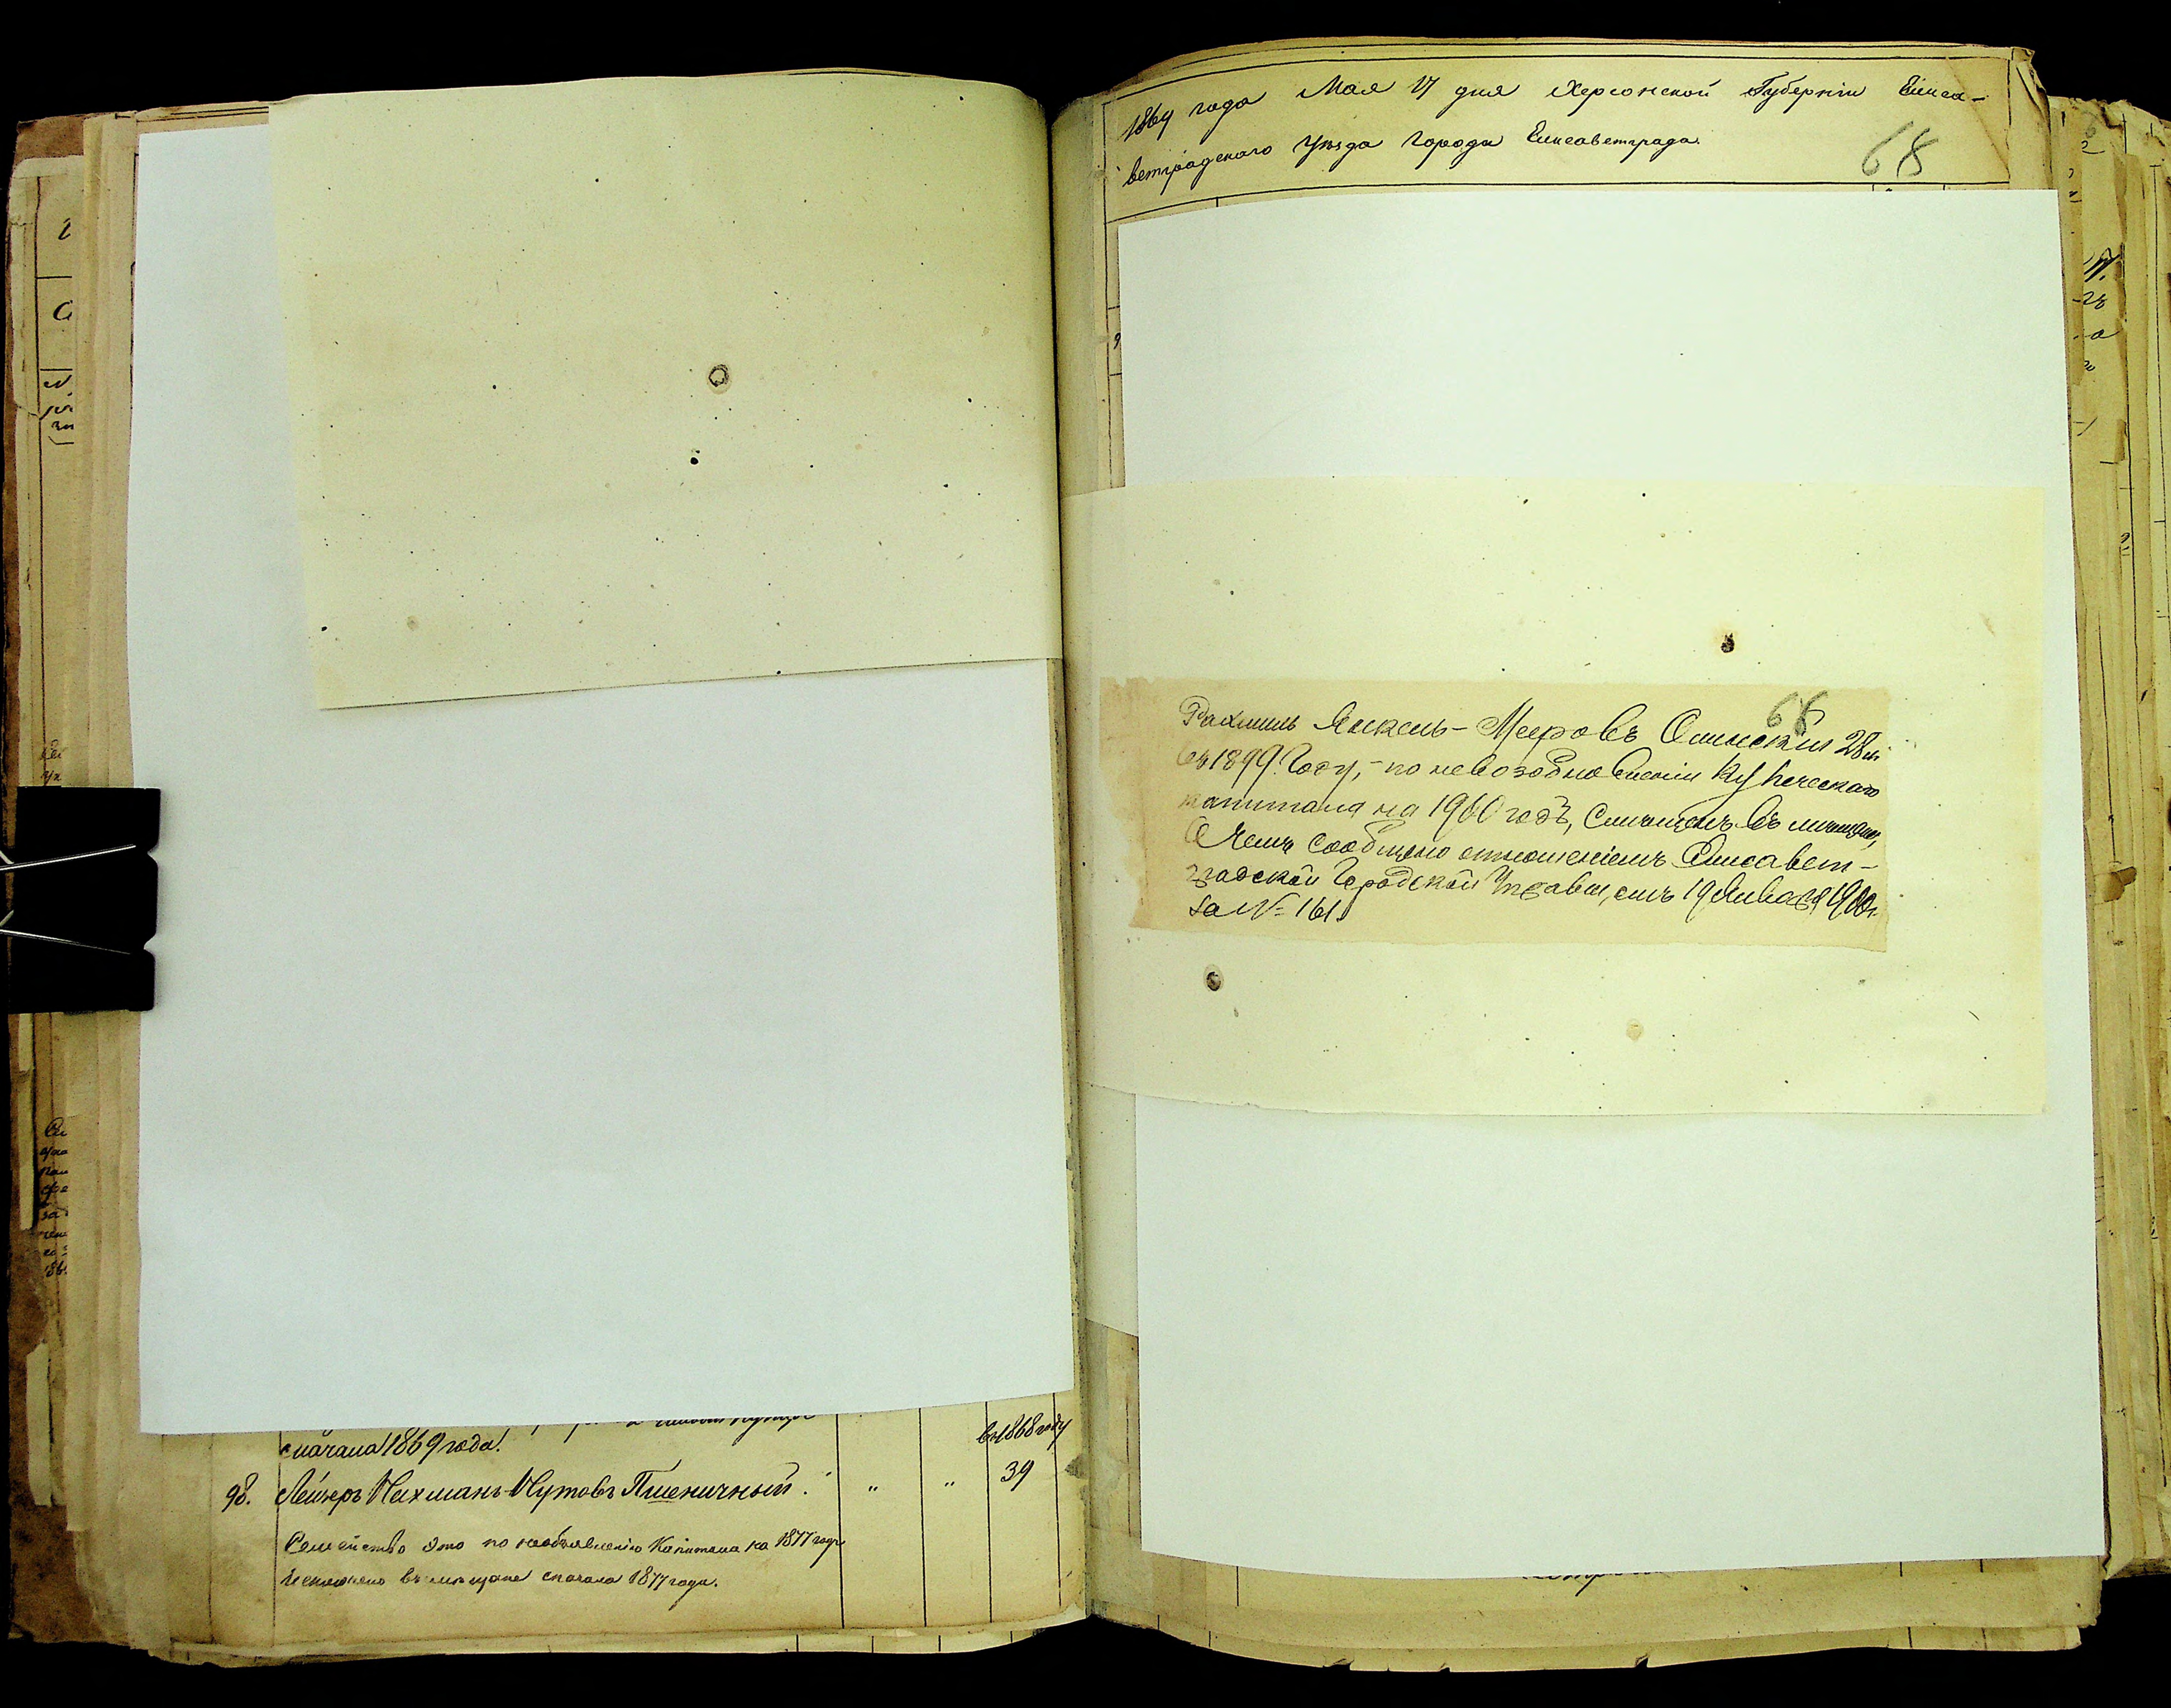 сначала 1869 года.
въ 1868 году
98. Лейзеръ Нахманъ-Нутовъ Пшеничный. " " 39
Семейство это по необъявленію Капитала на 1877 годъ
исключено въ мѣщане сначала 1877 года.
1869 года Мая 17 дня Херсонской Губерніи Елиса-
ветградскаго Уѣзда Города Елисаветграда.
68
68
Рахмиль Янкель-Мееровъ 28 л.
въ 1899 году, - по невозобновленіи Купеческаго
капитала на 1900 годъ, въ мѣщане,
О чемъ сообщено отношеніемъ Елисавет-
градской Городской Управы, отъ 19 Января 1900 г.
за № 161.